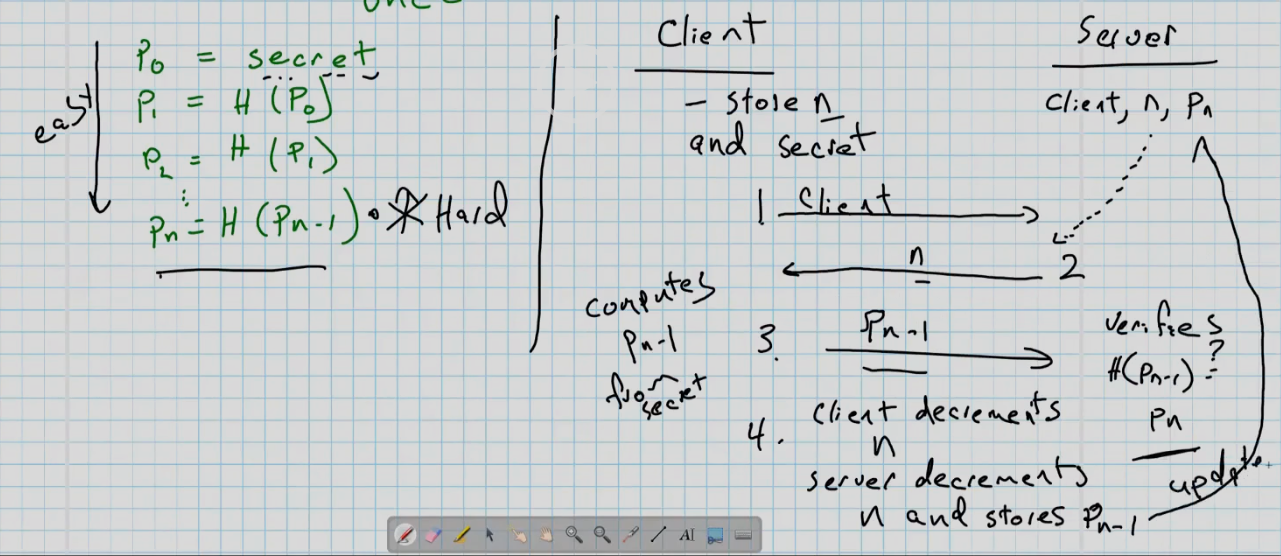 once
P₀ = secret
P₁ = H (P₀)
P₂ = H (P₁)
⋮
Pₙ = H (Pₙ-1) • * Hard
east
Client
- store n
and secret
Server
Client, n, Pₙ
1 Client
n 2
computes
Pn-1
from secret
3. Pn-1
verifies
H(Pn-1) ?=
Pn
4. client decrements
n
server decrements
n and stores Pn-1
update
AI